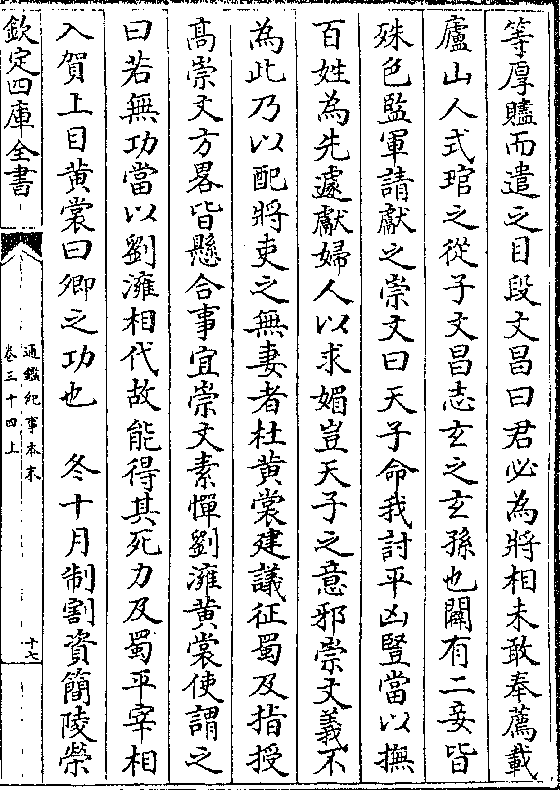 等厚贐而遣之目段文昌曰君必為將相未敢奉薦載
廬山人式琯之從子文昌志玄之玄孫也闢有二妾皆
殊色監軍請獻之崇文曰天子命我討平凶豎當以撫
百姓為先遽獻婦人以求媚豈天子之意邪崇文義不
為此乃以配將吏之無妻者杜黄裳建議征蜀及指授
髙崇文方畧皆懸合事宜崇文素憚劉澭黄裳使謂之
曰若無功當以劉澭相代故能得其死力及蜀平宰相
入賀上目黄裳曰卿之功也　冬十月制割資簡陵榮
欽定四庫全書
通鑑紀事本末
卷三十四上
十七